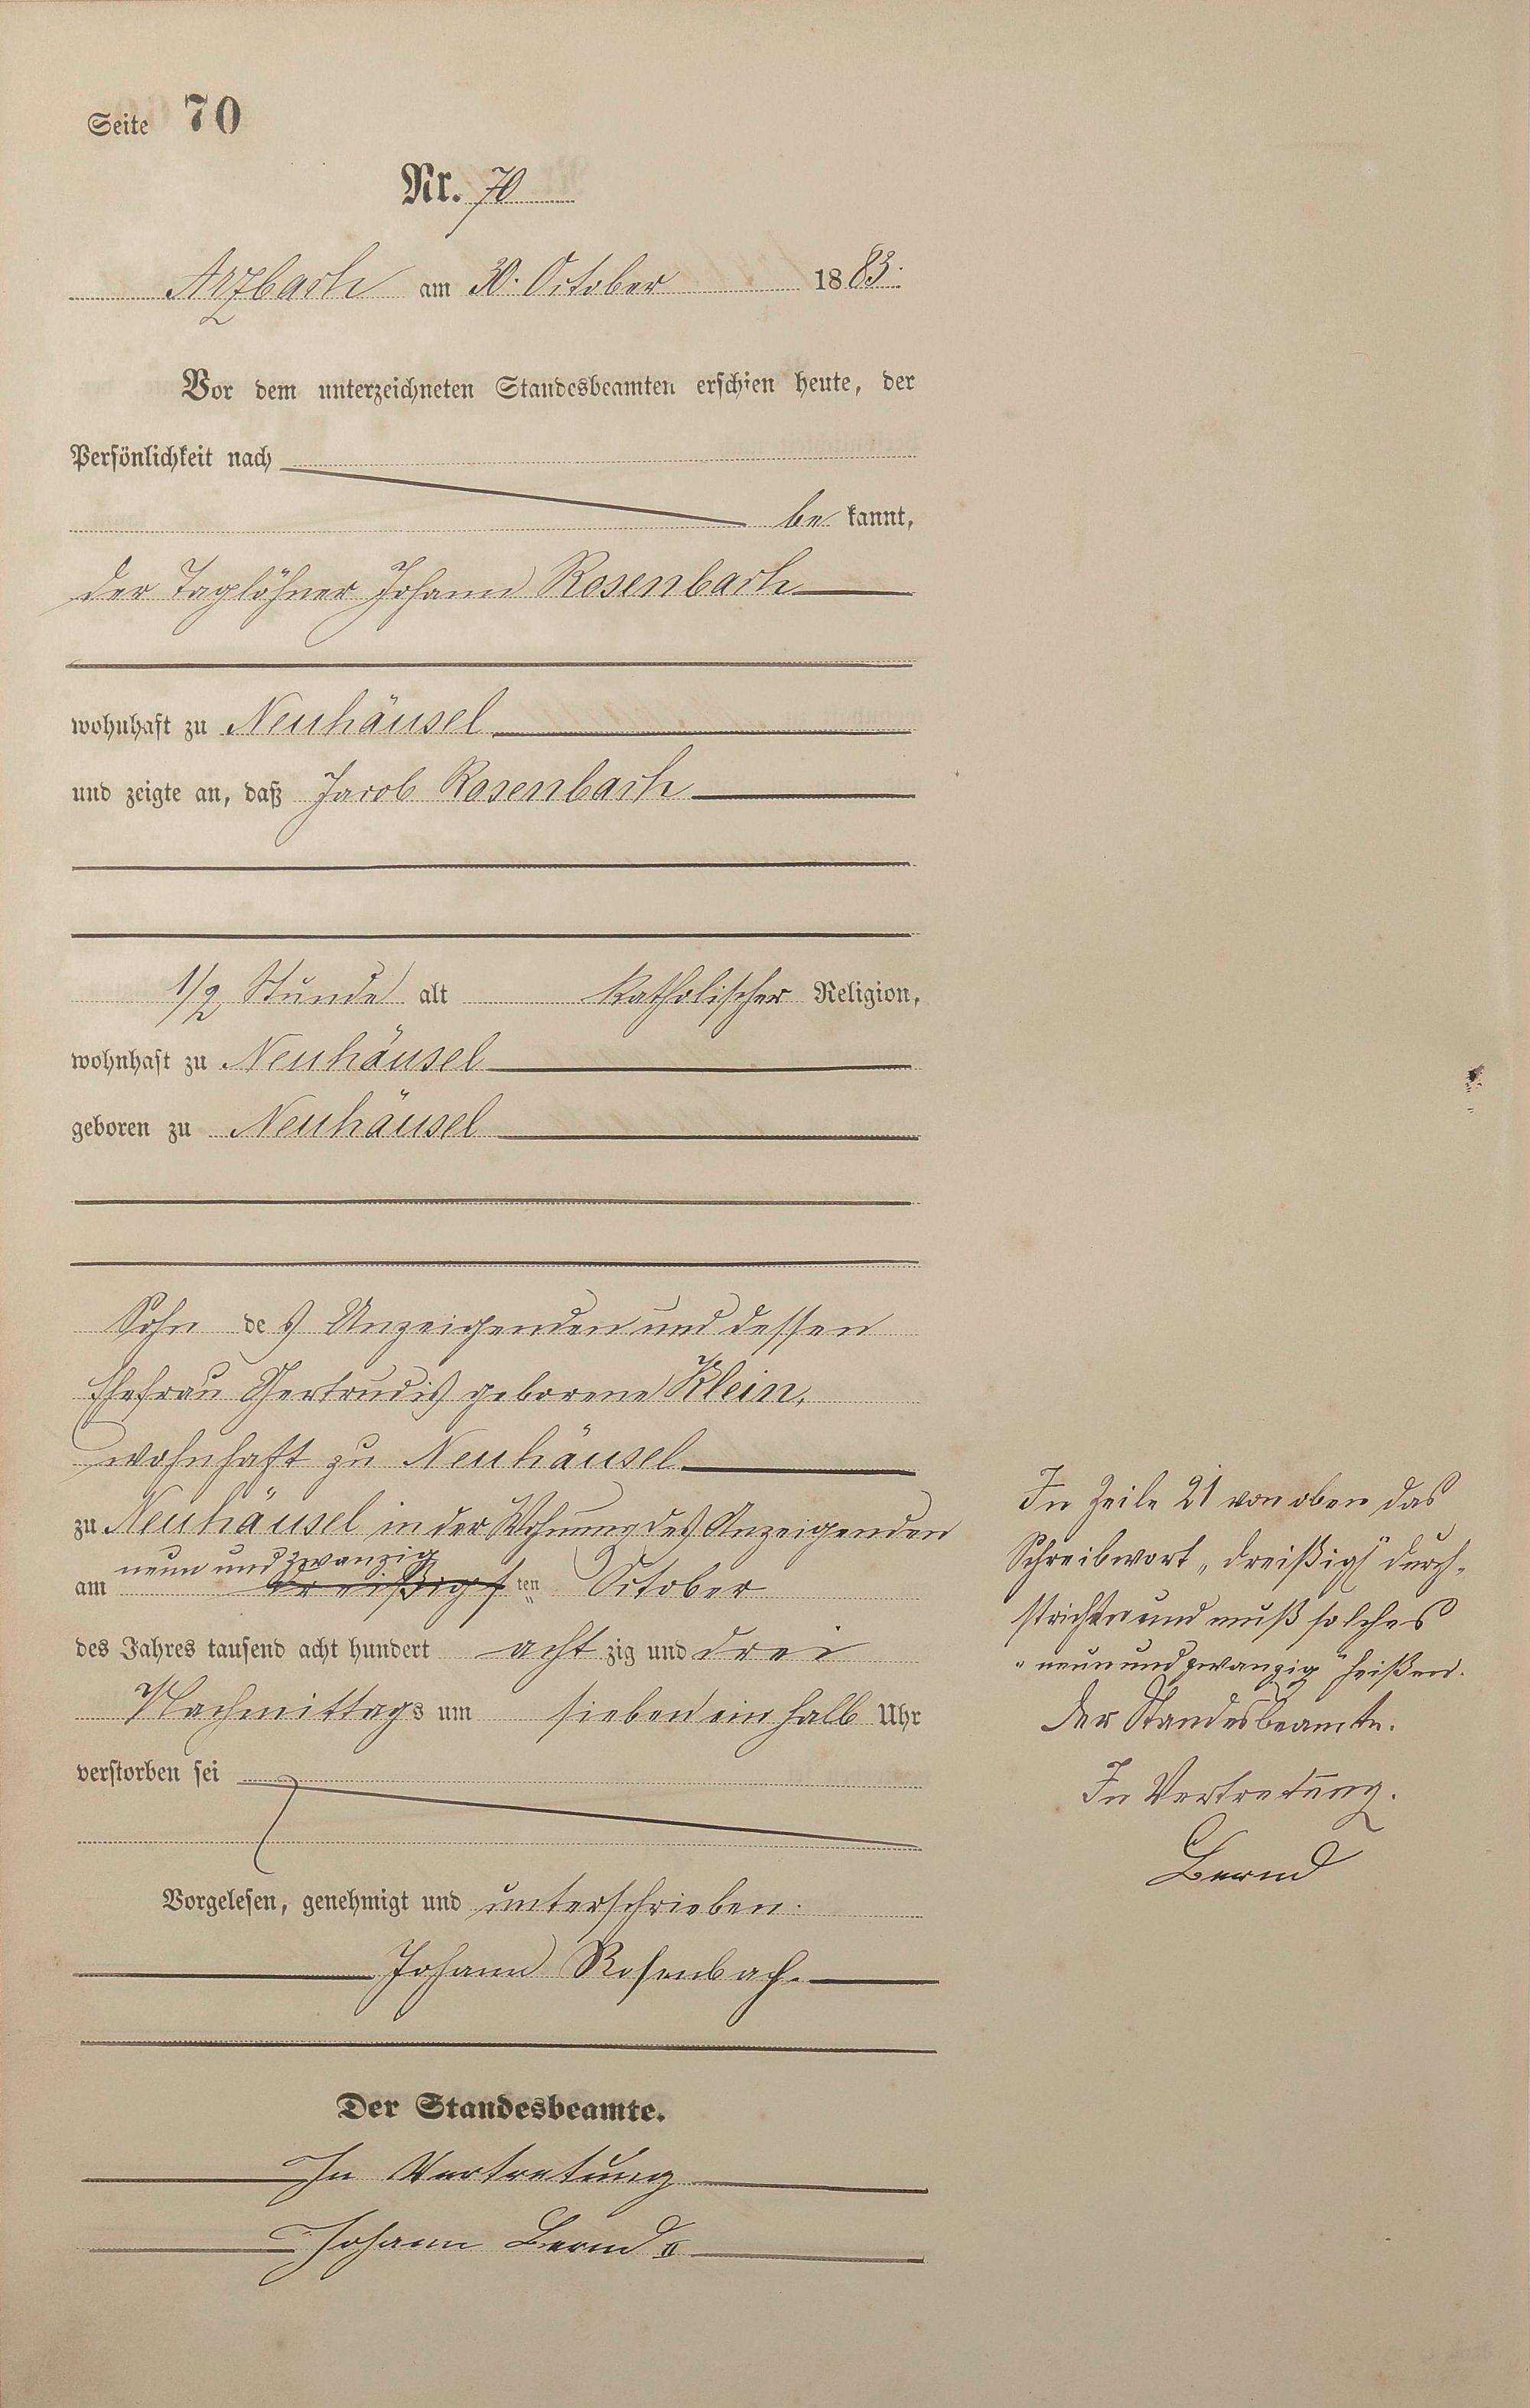 Seite 70
Nr. 70
Arzbach am 30. October 1883.
Vor dem unterzeichneten Standesbeamten erschien heute, der
Persönlichkeit nach
bekannt,
der Taglöhner Johann Rosenbach
wohnhaft zu Neuhäusel
und zeigte an, daß Jacob Rosenbach
1/2 Stunde alt katholischer Religion,
wohnhaft zu Neuhäusel
geboren zu Neuhäusel
Sohn des Anzeigenden und dessen
Ehefrau Gertrudis geborene Klein,
wohnhaft zu Neuhäusel
zu Neuhäusel in der Wohnung des Anzeigenden
neun und zwanzig
am dreißigsten October
des Jahres tausend acht hundert achtzig und drei
Nachmittags um sieben ein halb Uhr
verstorben sei
Vorgelesen, genehmigt und unterschrieben.
Johann Rosenbach.
Der Standesbeamte.
In Vertretung
Johann Bernd II
In Zeile 21 von oben das
Schreibwort „dreißigs" durch-
strichen und muß solches
"neun und zwanzig" heißen.
Der Standesbeamte.
In Vertretung.
Bernd